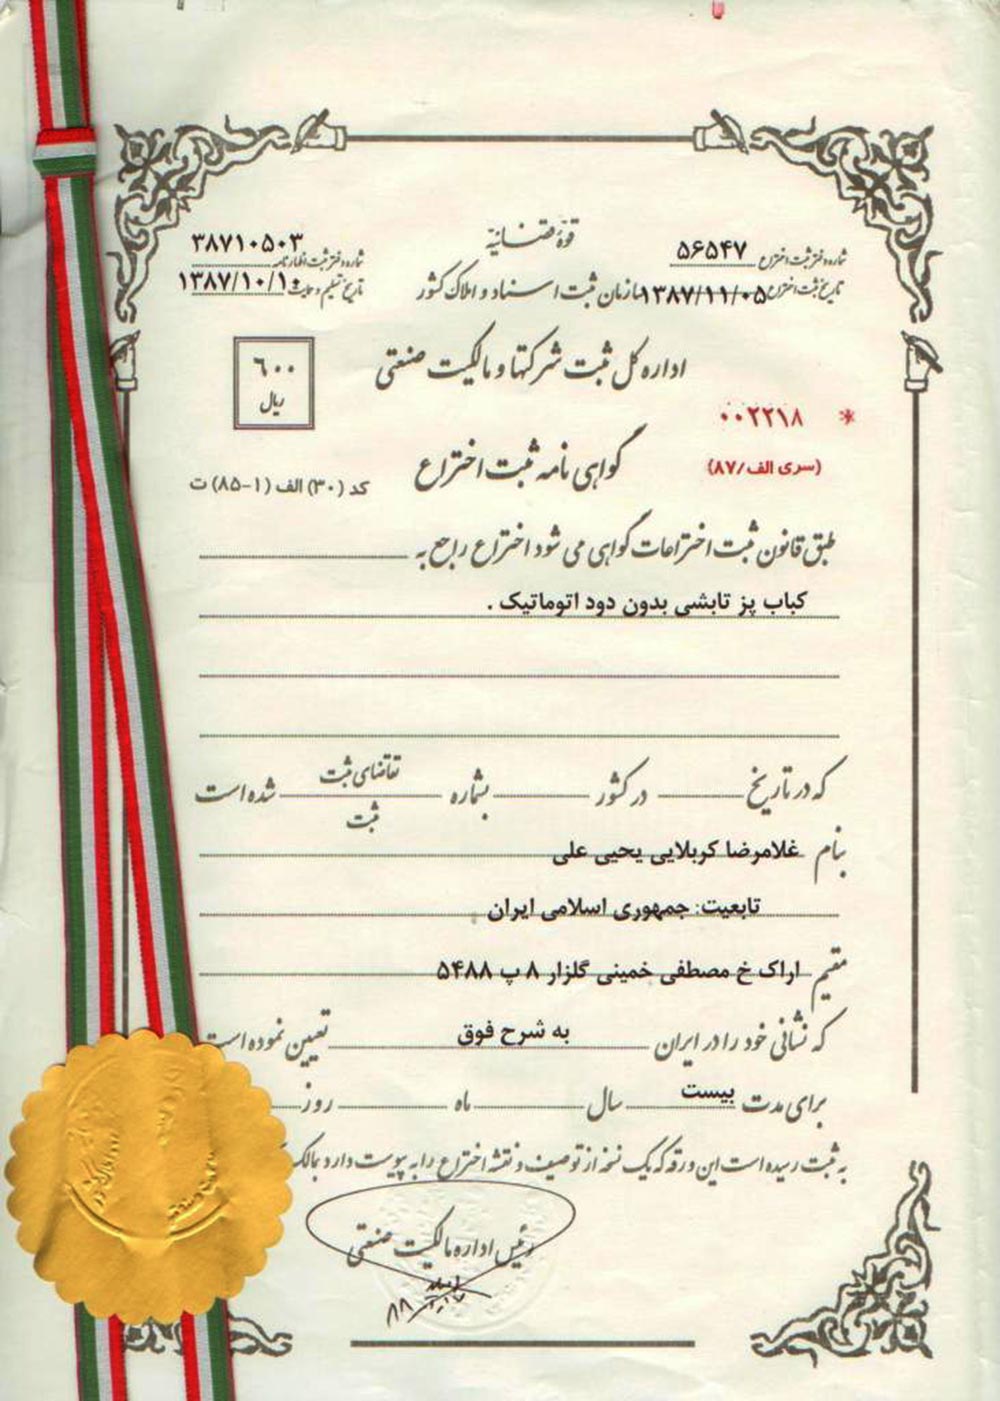 قوهٔ قضائیه
شماره دفتر ثبت اختراع ۵۶۵۴۷
تاریخ ثبت اختراع ۱۳۸۷/۱۱/۰۵
سازمان ثبت اسناد و املاک کشور
شماره دفتر ثبت اظهارنامه ۳۸۷۱۰۵۰۳
تاریخ تسلیم و حمایت ۱۳۸۷/۱۰/۱۰
اداره کل ثبت شرکتها و مالکیت صنعتی
۶۰۰
ریال
* ۰۰۲۲۱۸
(سری الف/۸۷)
گواهی نامه ثبت اختراع
کد (۳۰) الف (۱-۸۵) ت
طبق قانون ثبت اختراعات گواهی می شود اختراع راجع به
کباب پز تابشی بدون دود اتوماتیک .
که در تاریخ در کشور بشماره تقاضای ثبت شده است
ثبت
بنام غلامرضا کربلایی یحیی علی
تابعیت: جمهوری اسلامی ایران
مقیم اراک خ مصطفی خمینی گلزار ۸ پ ۵۴۸۸
که نشانی خود را در ایران به شرح فوق تعیین نموده است
برای مدت بیست سال ماه روز
به ثبت رسیده است این ورقه که یک نسخه از توصیف و نقشه اختراع را به پیوست دارد بمالک
رئیس اداره مالکیت صنعتی